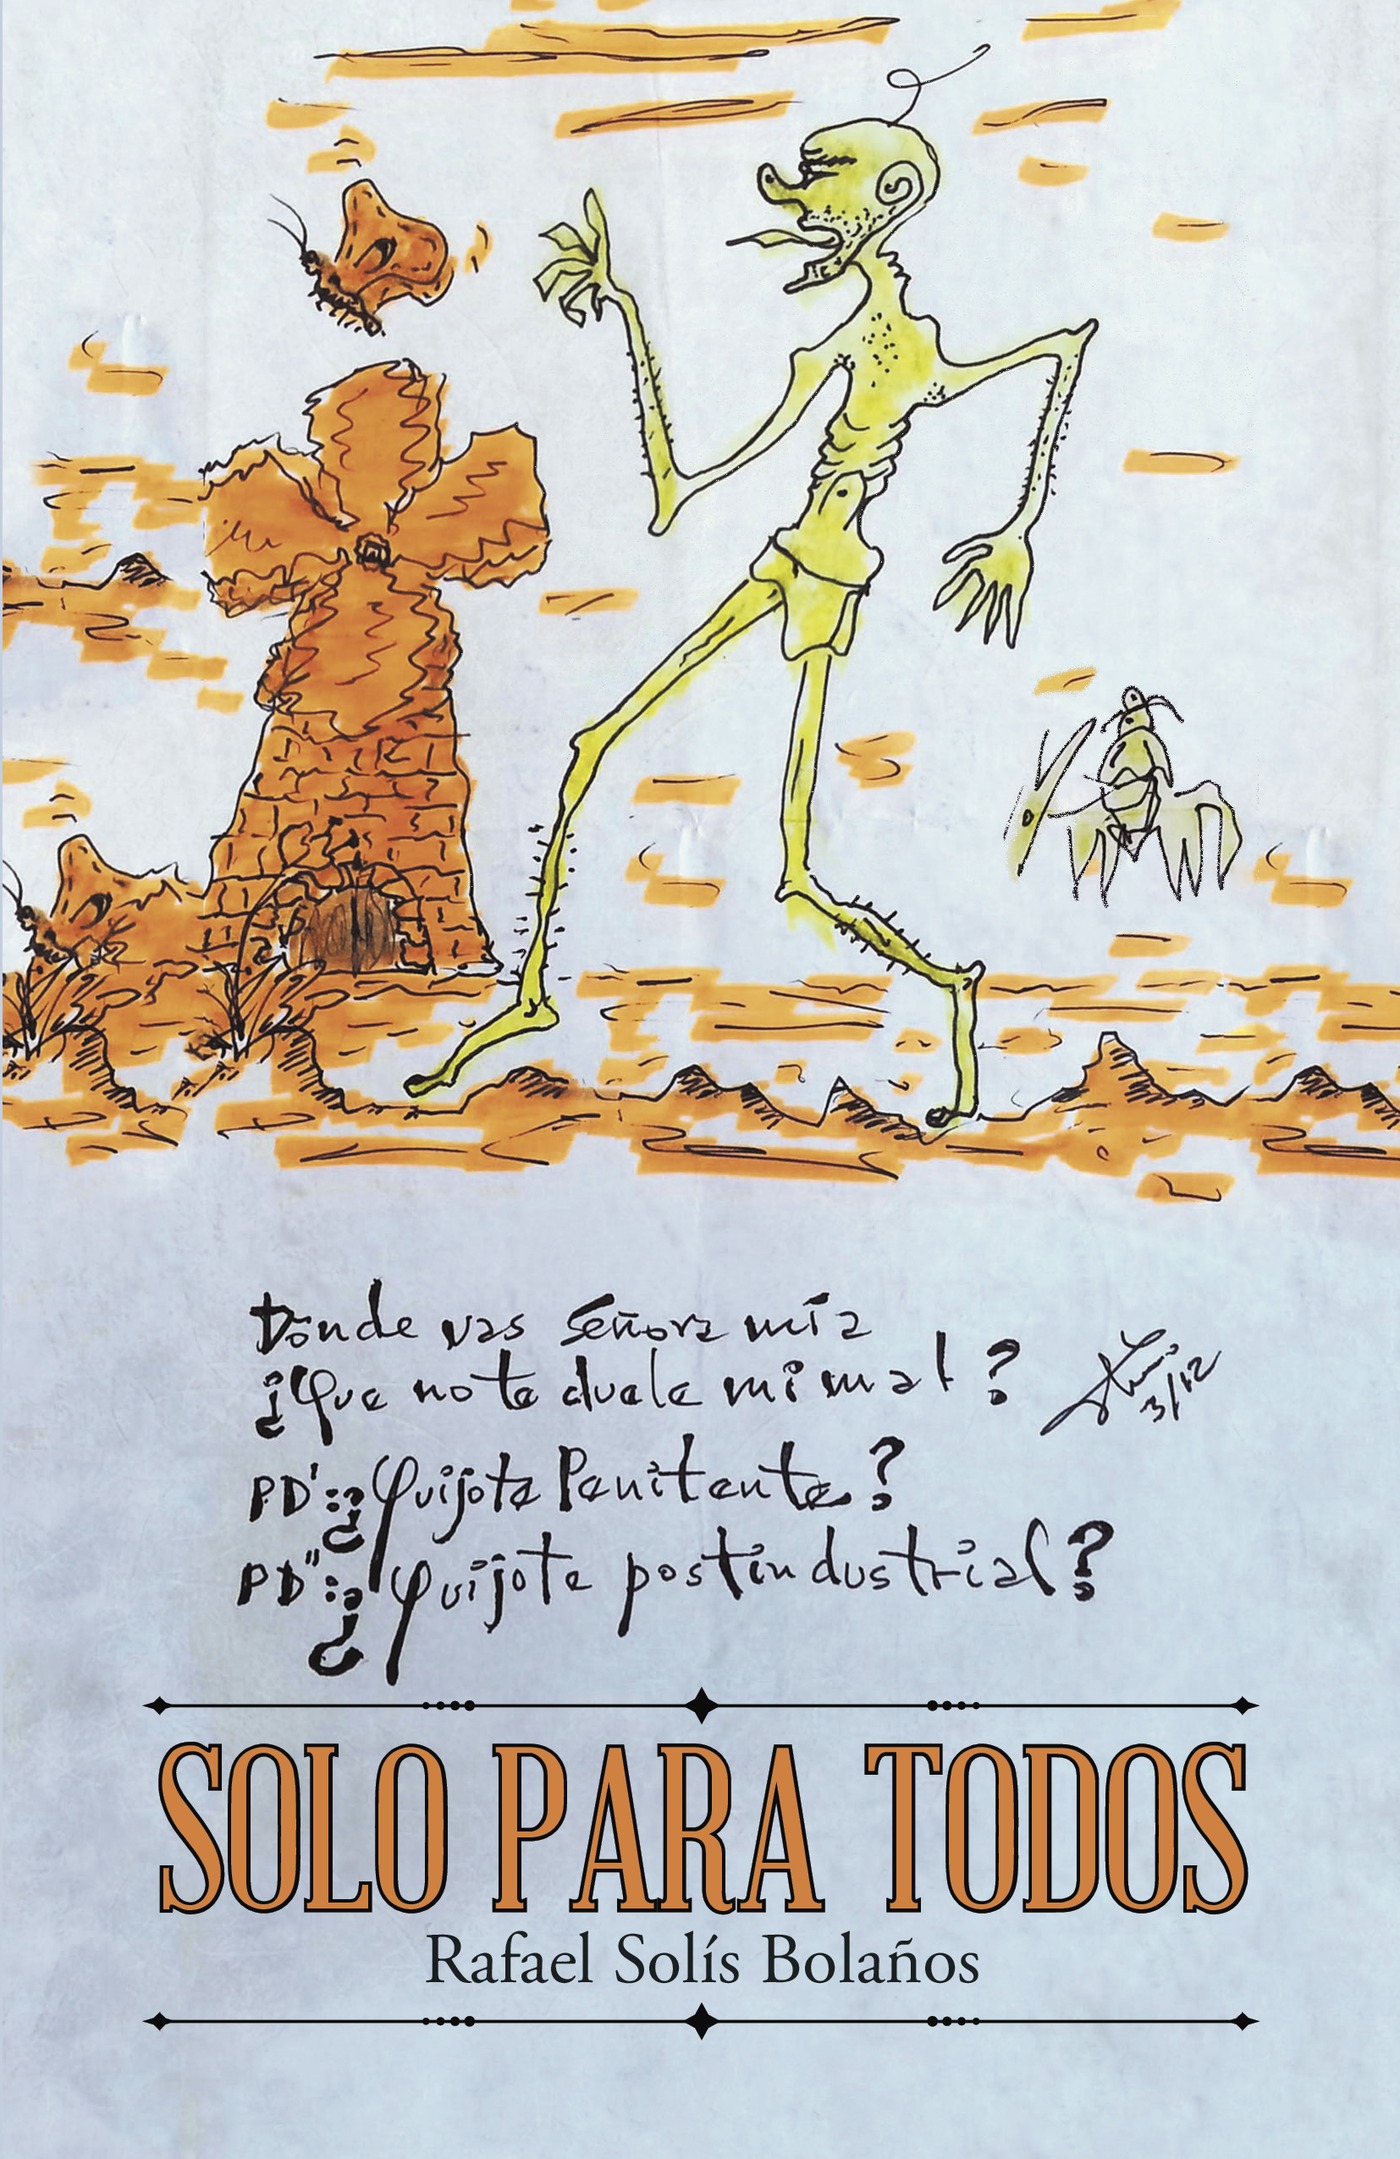 Donde vas señora mía
¿Que no te duele mi mal?
3/12
PD': ¿Quijote Penitente?
PD'': ¿Quijote postindustrial?
SOLO PARA TODOS
Rafael Solís Bolaños